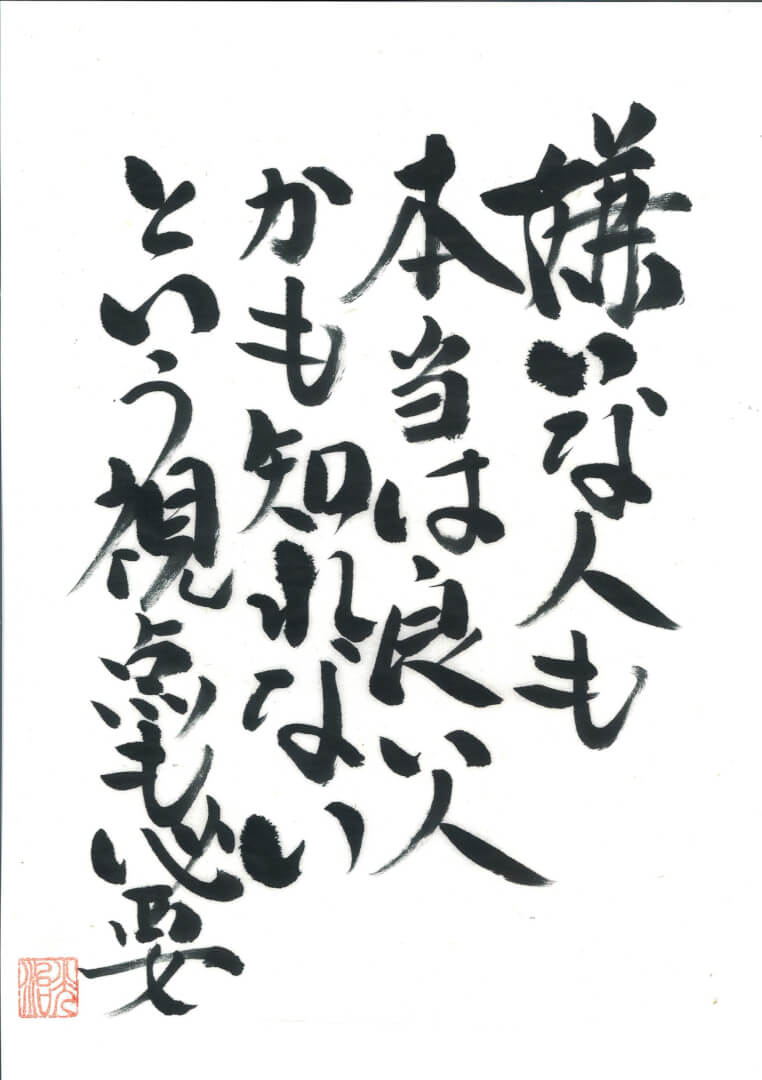 嫌いな人も
本当は良い人
かも知れない
という視点も必要